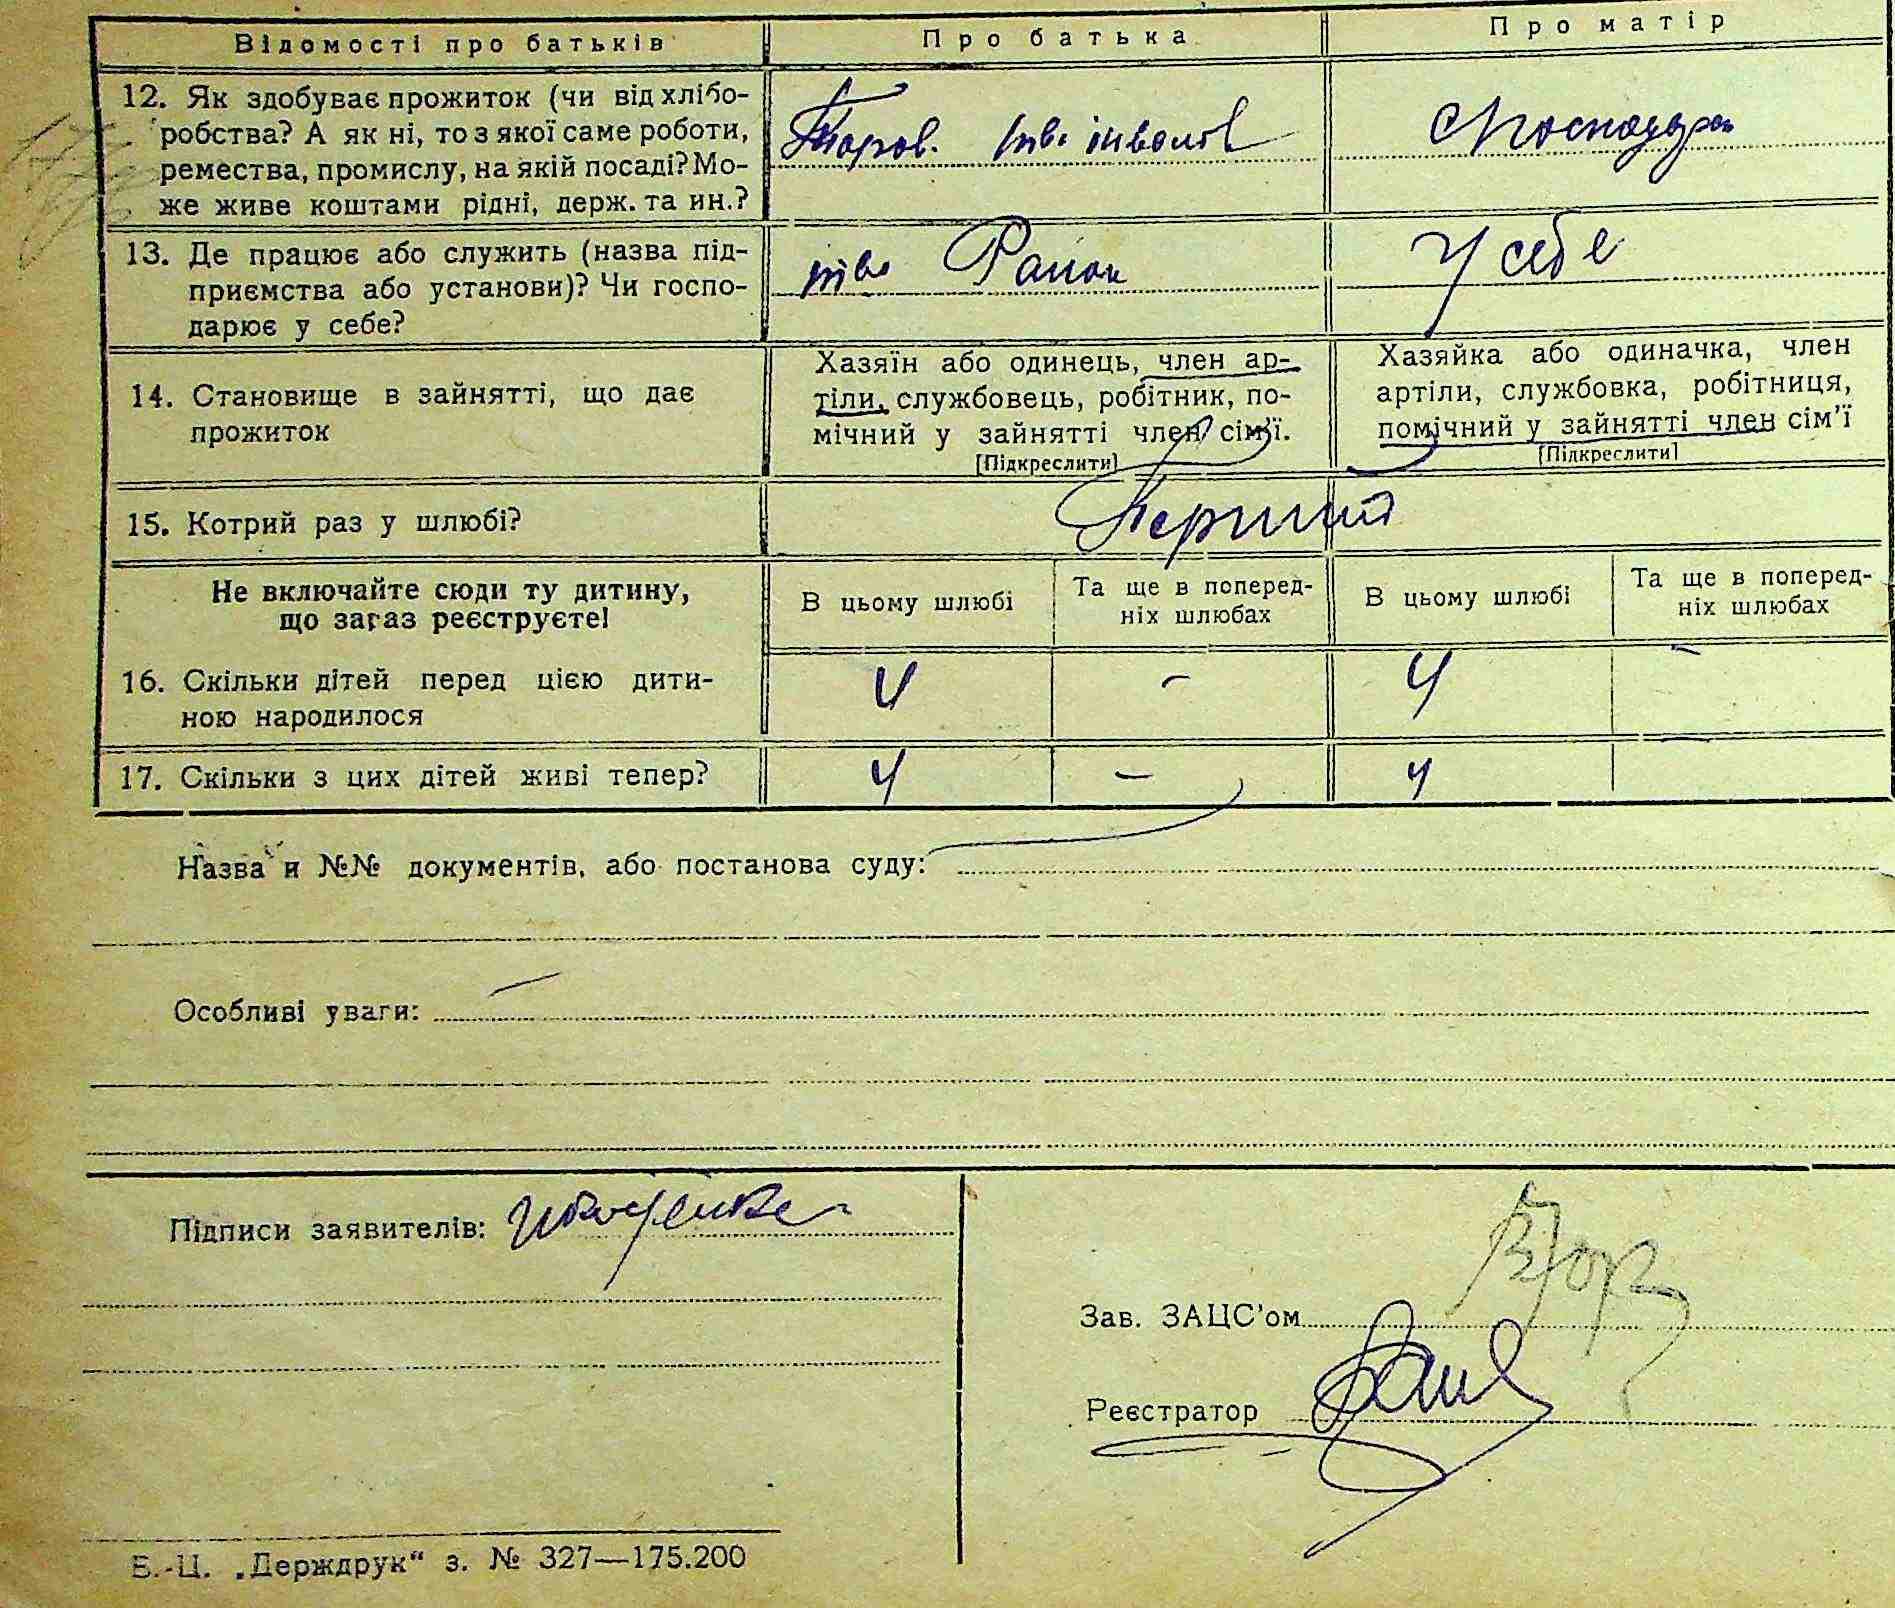 Відомості про батьків
Про батька
Про матір
12. Як здобуває прожиток (чи від хлібо-
робства? А як ні, то з якої саме роботи,
ремества, промислу, на якій посаді? Мо-
же живе коштами рідні, держ. та ин.?
13. Де працює або служить (назва під-
приємства або установи)? Чи госпо-
дарює у себе?
У себе
14. Становище в зайнятті, що дає
прожиток
Хазяїн або одинець, член ар-
тіли, службовець, робітник, по-
мічний у зайнятті член сім'ї.
[Підкреслити]
Хазяйка або одиначка, член
артіли, службовка, робітниця,
помічний у зайнятті член сім'ї
[Підкреслити]
15. Котрий раз у шлюбі?
Перший
Не включайте сюди ту дитину,
що зараз реєструєте!
В цьому шлюбі
Та ще в поперед-
ніх шлюбах
В цьому шлюбі
Та ще в поперед-
ніх шлюбах
16. Скільки дітей перед цією дити-
ною народилося
4 - 4 -
17. Скільки з цих дітей живі тепер?
4 - 4 -
Назва и №№ документів, або постанова суду:
Особливі уваги:
Підписи заявителів:
Зав. ЗАЦС'ом
Реєстратор
Б.-Ц. „Держдрук“ з. № 327—175.200